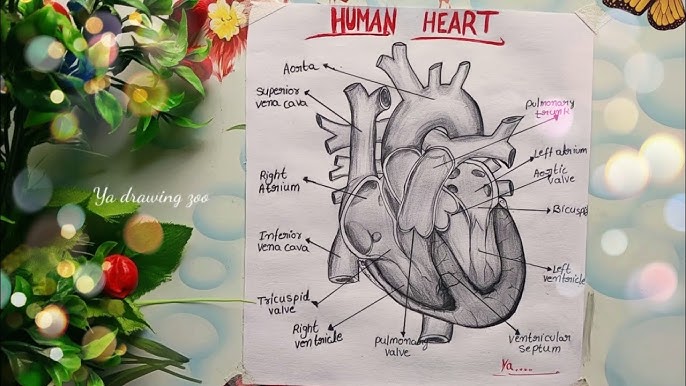 HUMAN HEART
Aorta
Superior
vena cava
Pulmonary
trunk
Left atrium
Aortic
valve
Right
Atrium
Bicuspid
Inferior
vena cava
Left
ventricle
Tricuspid
valve
Right
ventricle
Pulmonary
valve
ventricular
septum
Ya....
Ya drawing zoo